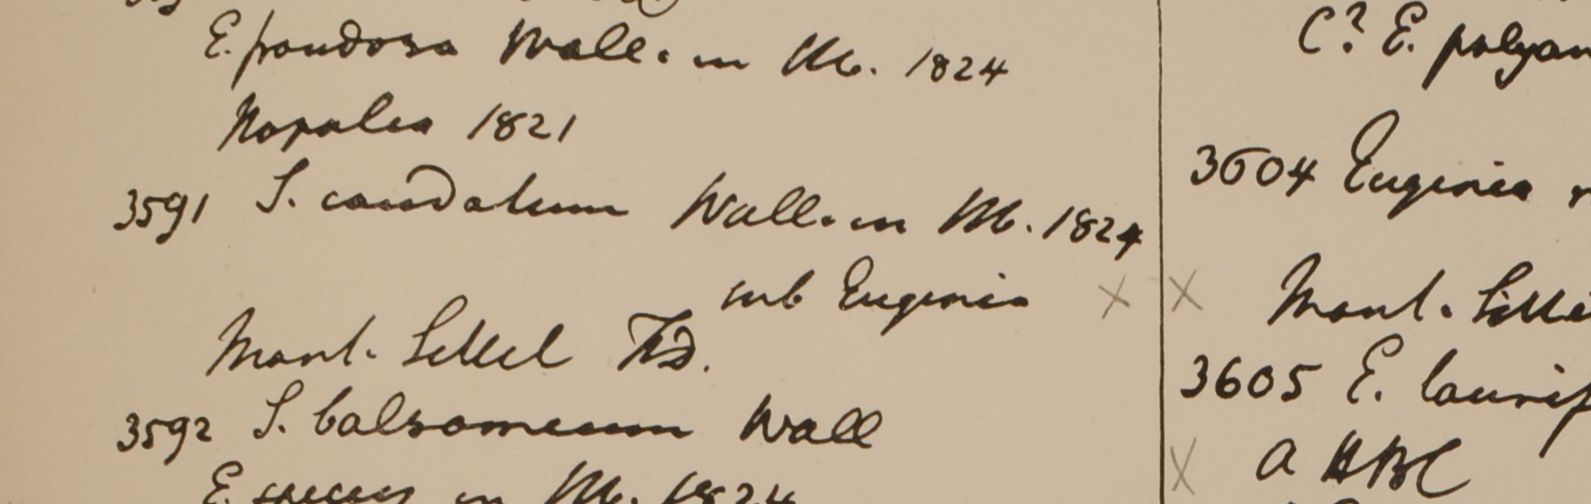 E. frondosa Wall. in M. 1824
Napalia 1821
3591 S. caudatum Wall. in M. 1824
sub Eugenia × 
Mont. Sillet FD.
3592 S. balsameum Wall
E. species in M. 1824
C? E. polyan
3604 Eugenia
× Mont. Sille
3605 E. laurif
× a HBC